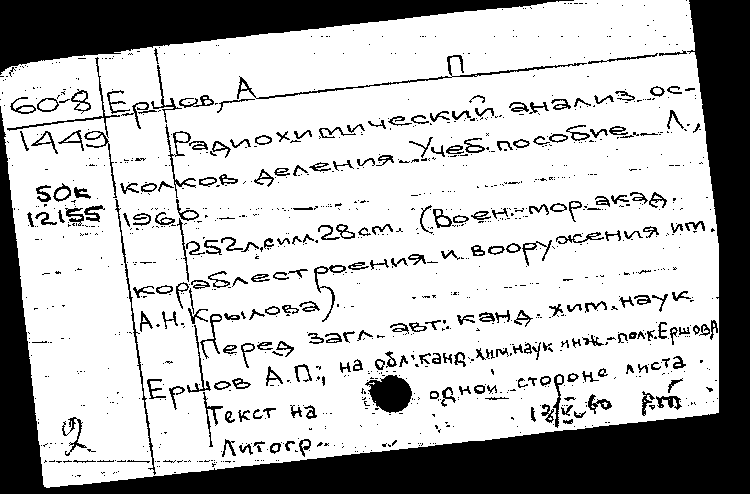 60-8 Ершов, А П
1449 Радиохимический анализ ос-
50к колков деления. Учеб. пособие. Л.,
12155 1960.
252 л. с илл. 28 см. (Воен.-мор. акад.
кораблестроения и вооружения им.
А.Н. Крылова).
Перед загл. авт: канд. хим. наук
Ершов А.П.; на обл: канд. хим. наук инж.-полк. Ершов А
Текст на одной стороне листа.
2 Литогр. 60